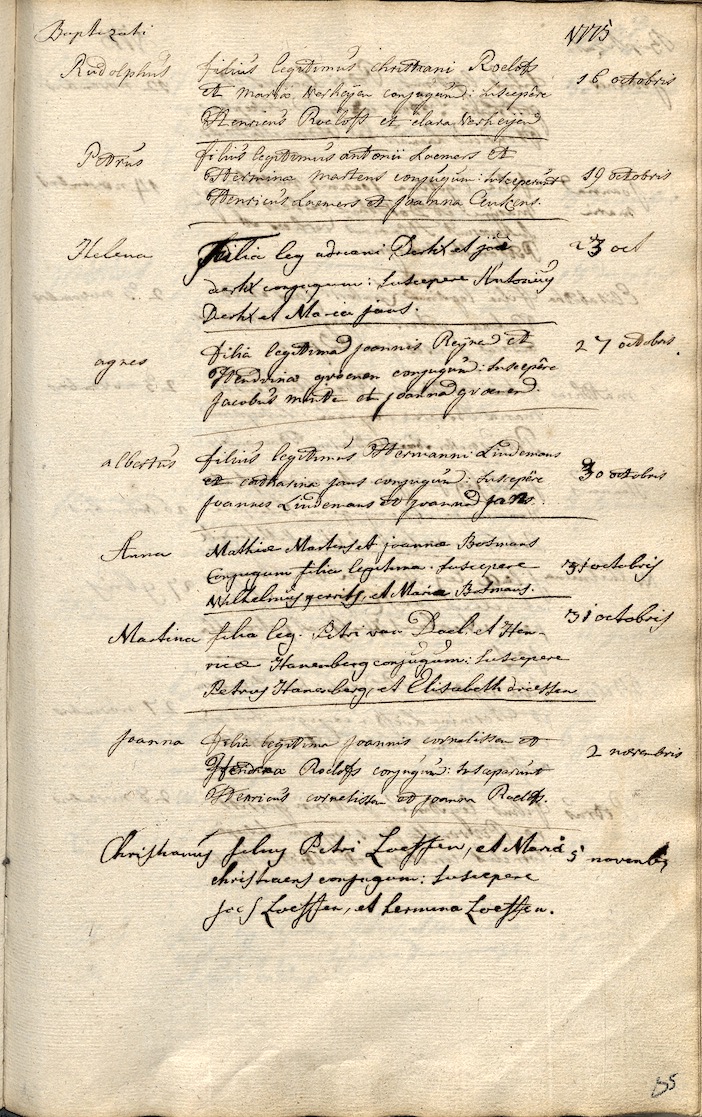 Baptizati 1775
Rudolphus filius legitimus christiani Roeloffs 16 octobris
et maria Verheijen conjugum: suscepêre
Henricus Roeloffs et clara Verheijen
Petrus filius legitimus antonii Loemers et
Hermina martens conjugum: susceperunt 19 octobris
Henricus Loemers et joanna
Helena Filia leg adriani Derkx et 23 oct
derkx conjugum: suscepere Antonius
Derkx et Maria jans.
agnes filia legitima joannis et 27 octobris.
Hendrina groenen conjugum: suscepêre
jacobus et joanna groenen.
albertus filius legitimus Hermanni Lindemans
et catharina jans conjugum: suscepêre 30 octobris
joannes Lindemans et joanna jans.
Anna Mathiæ Martens et joannæ Bosmans
Conjugum filia legitima. suscepere 31 octobris
Wilhelmus gerrits, et Maria Bosmans.
Martina filia leg. Petri van Dael. et Hen- 31 octobris
ricæ Hanenberg conjugum: suscepere
Petrus Hanenberg, et Elisabeth driessen
joanna filia legitima joannis cornelissen et 2 novembris
Hendrina Roeloffs conjugum: susceperunt
Henricus cornelissen et joanna Roeloffs.
Christianus filius Petri Loeffen, et Maria 5 novembris
christiaens conjugum: suscepere
Loeffen, et hermina Loeffen.